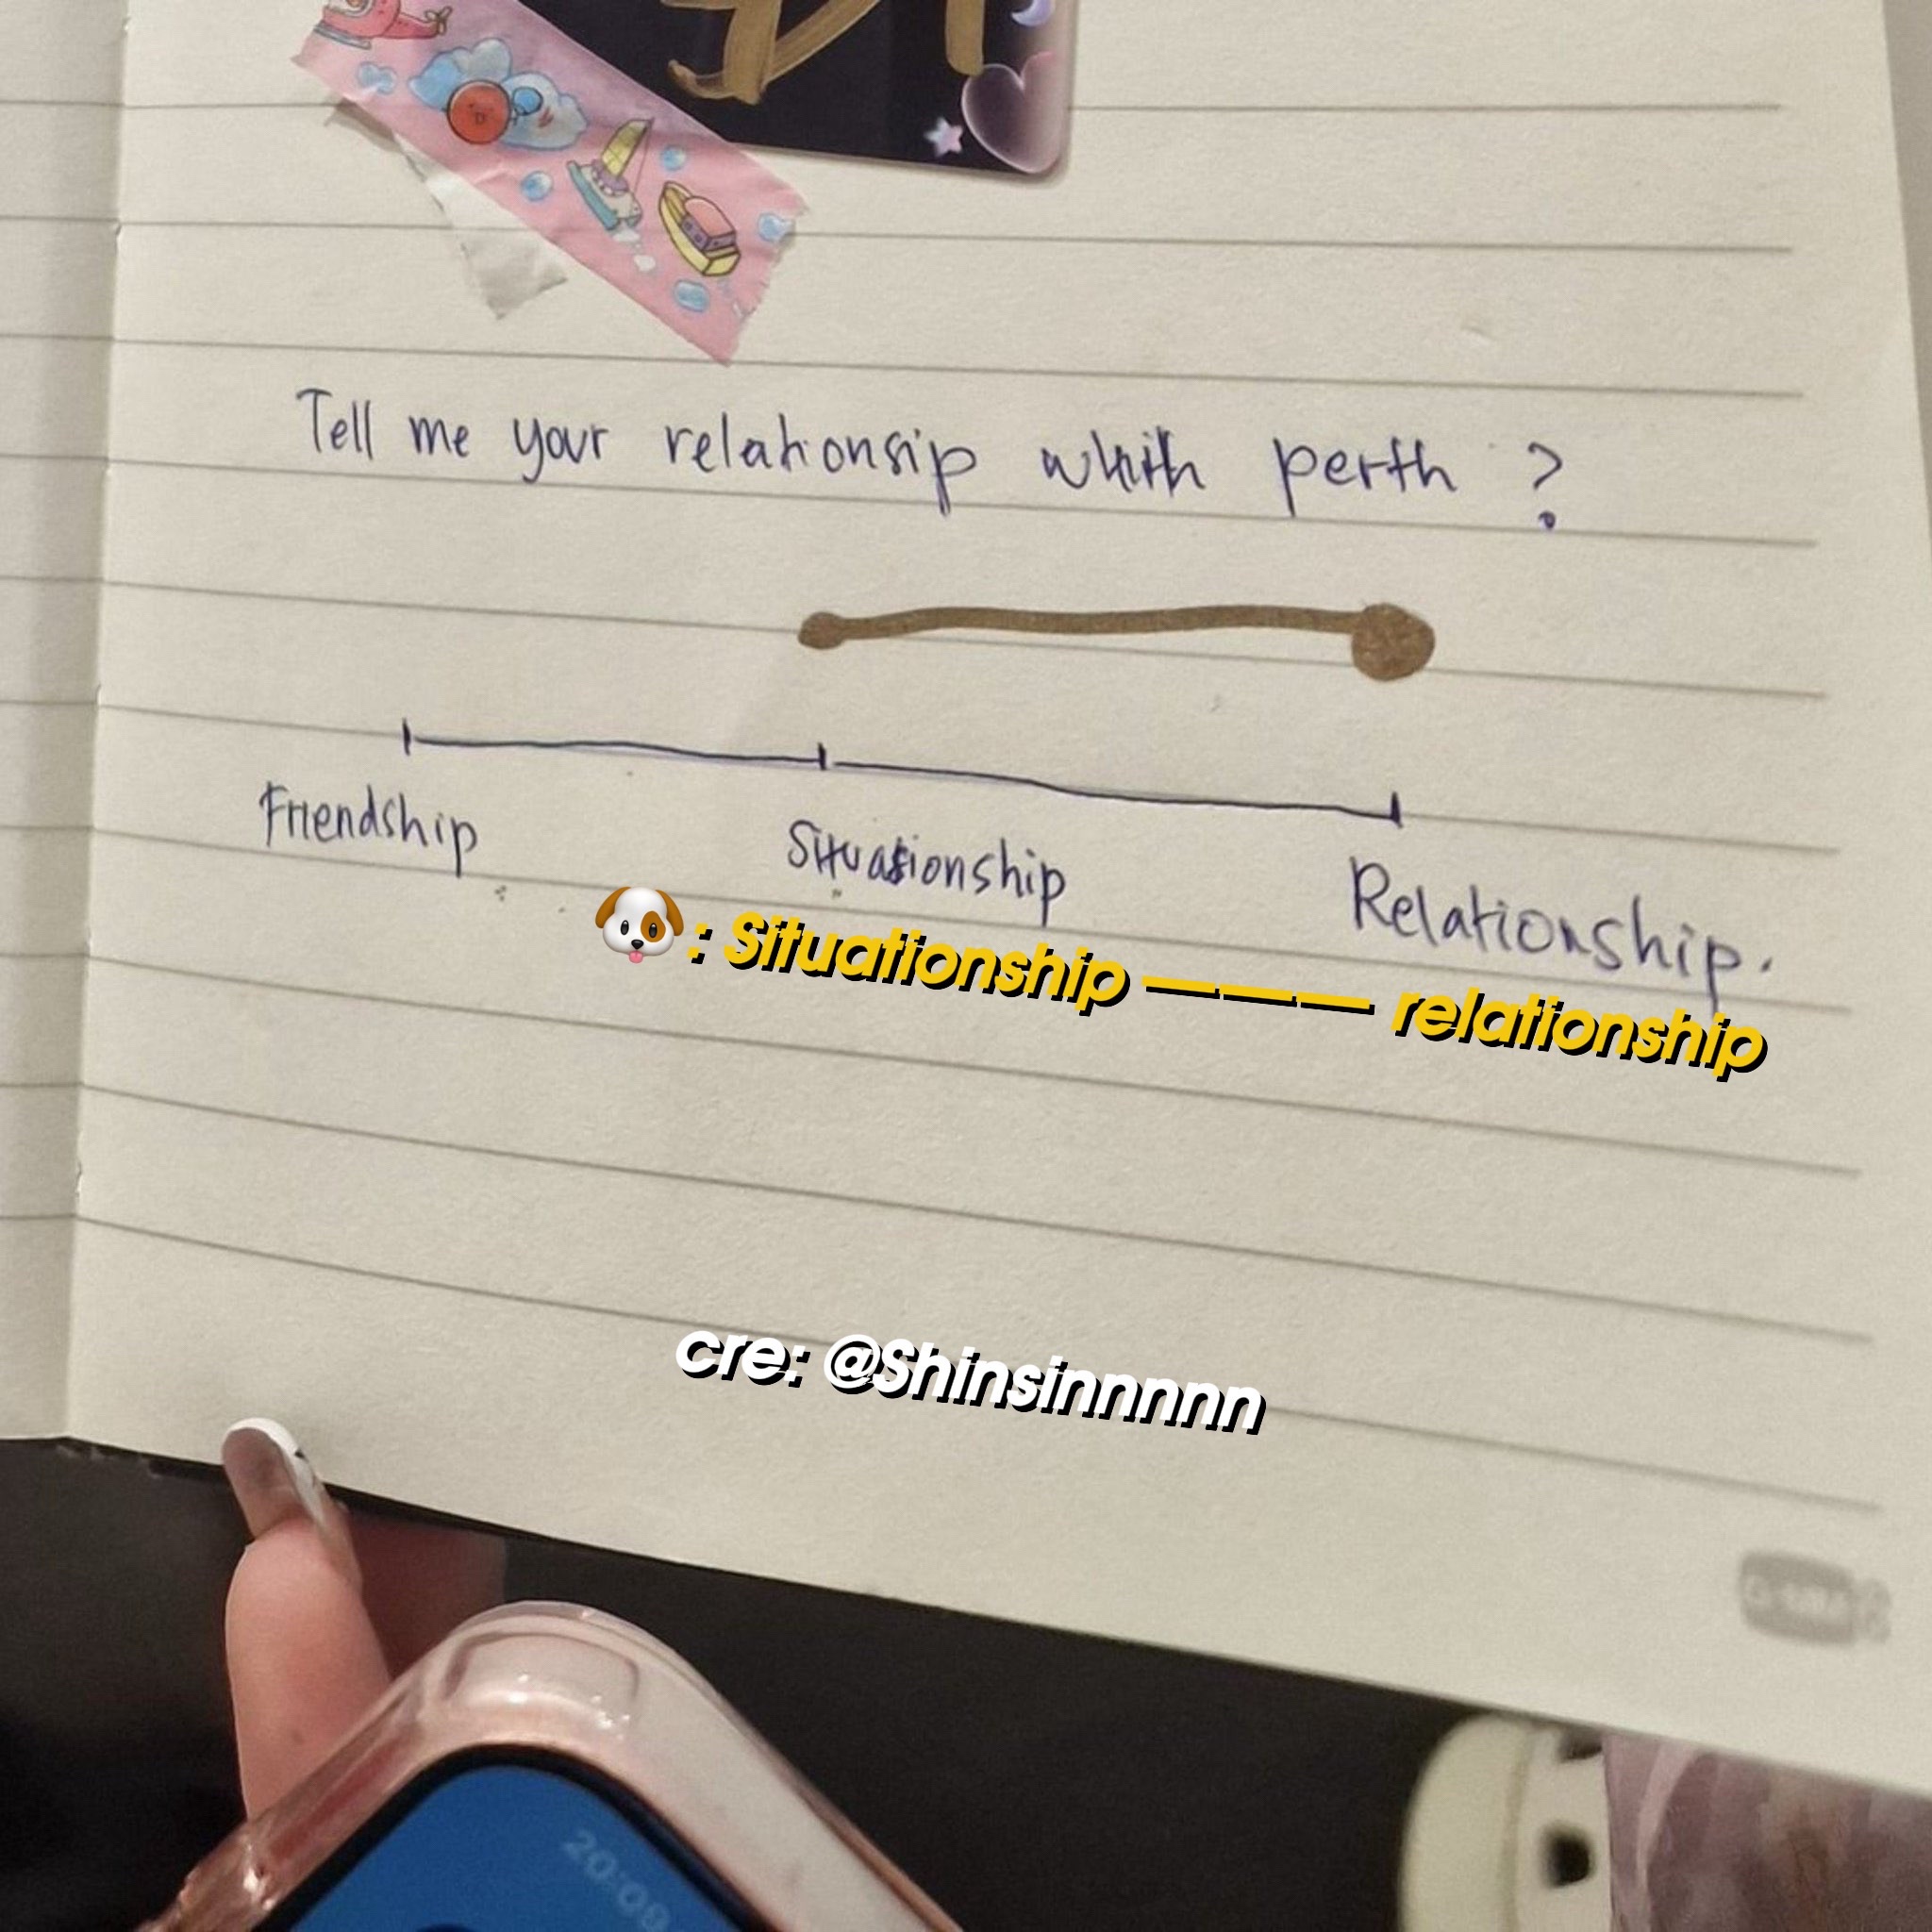 Tell me your relationsip whith perth ?
Friendship
Situasionship
Relationship.
🐶: Situationship ——— relationship
cre: @Shinsinnnnn
20:09